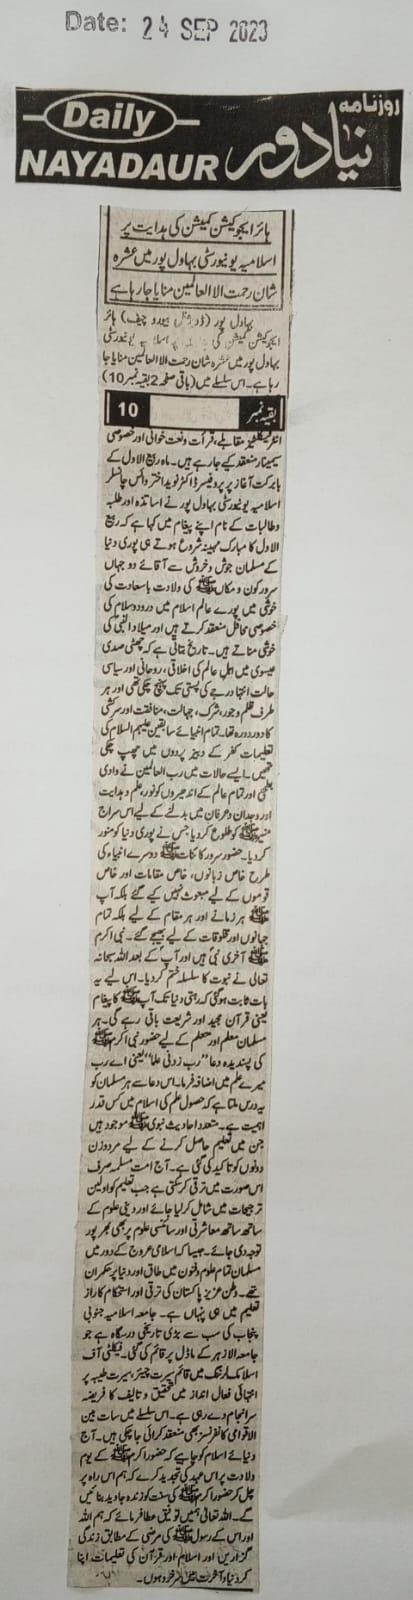 Date: 24 SEP 2023
Daily
NAYADAUR
روزنامہ
نیا دور
ہائر ایجوکیشن کمیشن کی ہدایت پر
اسلامیہ یونیورسٹی بہاول پور میں عشرہ
شان رحمت اللعالمین منایا جا رہا ہے
بہاول پور (ڈویژنل بیورو چیف) ہائر
ایجوکیشن کمیشن کی یونیورسٹی
بہاول پور میں عشرہ شان رحمت اللعالمین منایا جا
رہا ہے۔ اس سلسلے میں (باقی صفحہ 2 بقیہ نمبر 10)
بقیہ نمبر 10
انٹر فیکلٹیز مقابلے، قرأت و نعت خوانی اور خصوصی
سیمینار منعقد کیے جا رہے ہیں۔ ماہ ربیع الاول کے
بابرکت آغاز پر پروفیسر ڈاکٹر نوید اختر وائس چانسلر
اسلامیہ یونیورسٹی بہاول پور نے اساتذہ اور طلبہ
و طالبات کے نام اپنے پیغام میں کہا ہے کہ ربیع
الاول کا مبارک مہینہ شروع ہوتے ہی پوری دنیا
کے مسلمان جوش و خروش سے آقائے دو جہاں
سرور کون و مکاں ﷺ کی ولادت باسعادت کی
خوشی میں پورے عالم اسلام میں درود و سلام کی
خصوصی محافل منعقد کرتے ہیں اور میلاد النبی کی
خوشی مناتے ہیں۔ تاریخ بتاتی ہے کہ چھٹی صدی
عیسوی میں اہل عالم کی اخلاقی، روحانی اور سیاسی
حالت انتہا درجے کی پستی تک پہنچ چکی تھی اور ہر
طرف ظلم و جور، شرک، جہالت، منافقت اور سرکشی
کا دور دورہ تھا۔ تمام انبیائے سابقین علیہم السلام کی
تعلیمات کفر کے دبیز پردوں میں چھپ چکی
تھیں۔ ایسے حالات میں رب العالمین نے وادی
بطحیٰ اور تمام عالم کے اندھیروں کو نور، علم و ہدایت
اور وجدان و عرفان میں بدلنے کے لیے اس سراج
منیر ﷺ کو طلوع کر دیا جس نے پوری دنیا کو منور
کر دیا۔ حضور سرور کائنات ﷺ دوسرے انبیاء کی
طرح خاص زبانوں، خاص مقامات اور خاص
قوموں کے لیے مبعوث نہیں کیے گئے بلکہ آپ
ﷺ ہر زمانے اور ہر مقام کے لیے بلکہ تمام
جہانوں اور مخلوقات کے لیے بھیجے گئے۔ نبی اکرم
ﷺ آخری نبی ہیں اور آپ کے بعد اللہ سبحانہ
تعالیٰ نے نبوت کا سلسلہ ختم کر دیا۔ اس لیے یہ
بات ثابت ہو گئی کہ رہتی دنیا تک آپ ﷺ کا پیغام
یعنی قرآن مجید اور شریعت باقی رہے گی۔ ہر
مسلمان معلم اور متعلم کے لیے حضور نبی اکرم ﷺ
کی پسندیدہ دعا "رب زدنی علما" یعنی اے رب
میرے علم میں اضافہ فرما۔ اس دعا سے ہر مسلمان کو
یہ درس ملتا ہے کہ حصول علم کی اسلام میں کس قدر
اہمیت ہے۔ متعدد احادیث نبوی ﷺ موجود ہیں
جن میں تعلیم حاصل کرنے کے لیے مرد و زن
دونوں کو تاکید کی گئی ہے۔ آج امت مسلمہ صرف
اس صورت میں ترقی کر سکتی ہے جب تعلیم کو اولین
ترجیحات میں شامل کر لیا جائے اور دینی علوم کے
ساتھ ساتھ معاشرتی اور سائنسی علوم پر بھی بھرپور
توجہ دی جائے۔ جیسا کہ اسلامی عروج کے دور میں
مسلمان تمام علوم و فنون میں طاق اور دنیا پر حکمران
تھے۔ وطن عزیز پاکستان کی ترقی اور استحکام کا راز
تعلیم میں ہی پنہاں ہے۔ جامعہ اسلامیہ جنوبی
پنجاب کی سب سے بڑی تاریخی درسگاہ ہے جو
جامعہ الازہر کے ماڈل پر قائم کی گئی۔ فیکلٹی آف
اسلامک لرننگ میں قائم سیرت چیئر، سیرت طیبہ پر
انتہائی فعال انداز میں تحقیق و تالیف کا فریضہ
سرانجام دے رہی ہے۔ اس سلسلے میں سات بین
الاقوامی کانفرنسز بھی منعقد کرائی جا چکی ہیں۔ آج
دنیائے اسلام کو چاہیے کہ حضور اکرم ﷺ کے یوم
ولادت پر اس عہد کی تجدید کرے کہ ہم اس راہ پر
چل کر حضور اکرم ﷺ کی سنت کو زندہ جاوید بنائیں
گے۔ اللہ تعالیٰ ہمیں توفیق عطا فرمائے کہ ہم اللہ
اور اس کے رسول ﷺ کی مرضی کے مطابق زندگی
گزاریں اور اسلام اور قرآن کی تعلیمات اپنا
کر دنیا و آخرت میں سرخرو ہوں۔